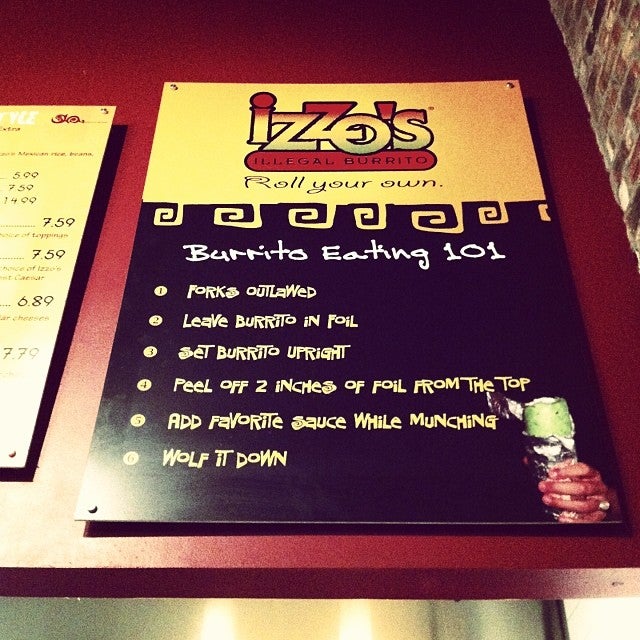 Extra
Mexican rice, beans,
5.99
7.59
14.99
7.59
choice of toppings
7.59
choice of Izzo's
Caesar
6.89
cheeses
7.79
izzo's
ILLEGAL BURRITO
Roll your own.
Burrito Eating 101
1 FORKS OUTLAWED
2 LEAVE BURRITO IN FOIL
3 SET BURRITO UPRIGHT
4 PEEL OFF 2 INCHES OF FOIL FROM THE TOP
5 ADD FAVORITE SAUCE WHILE MUNCHING
6 WOLF IT DOWN